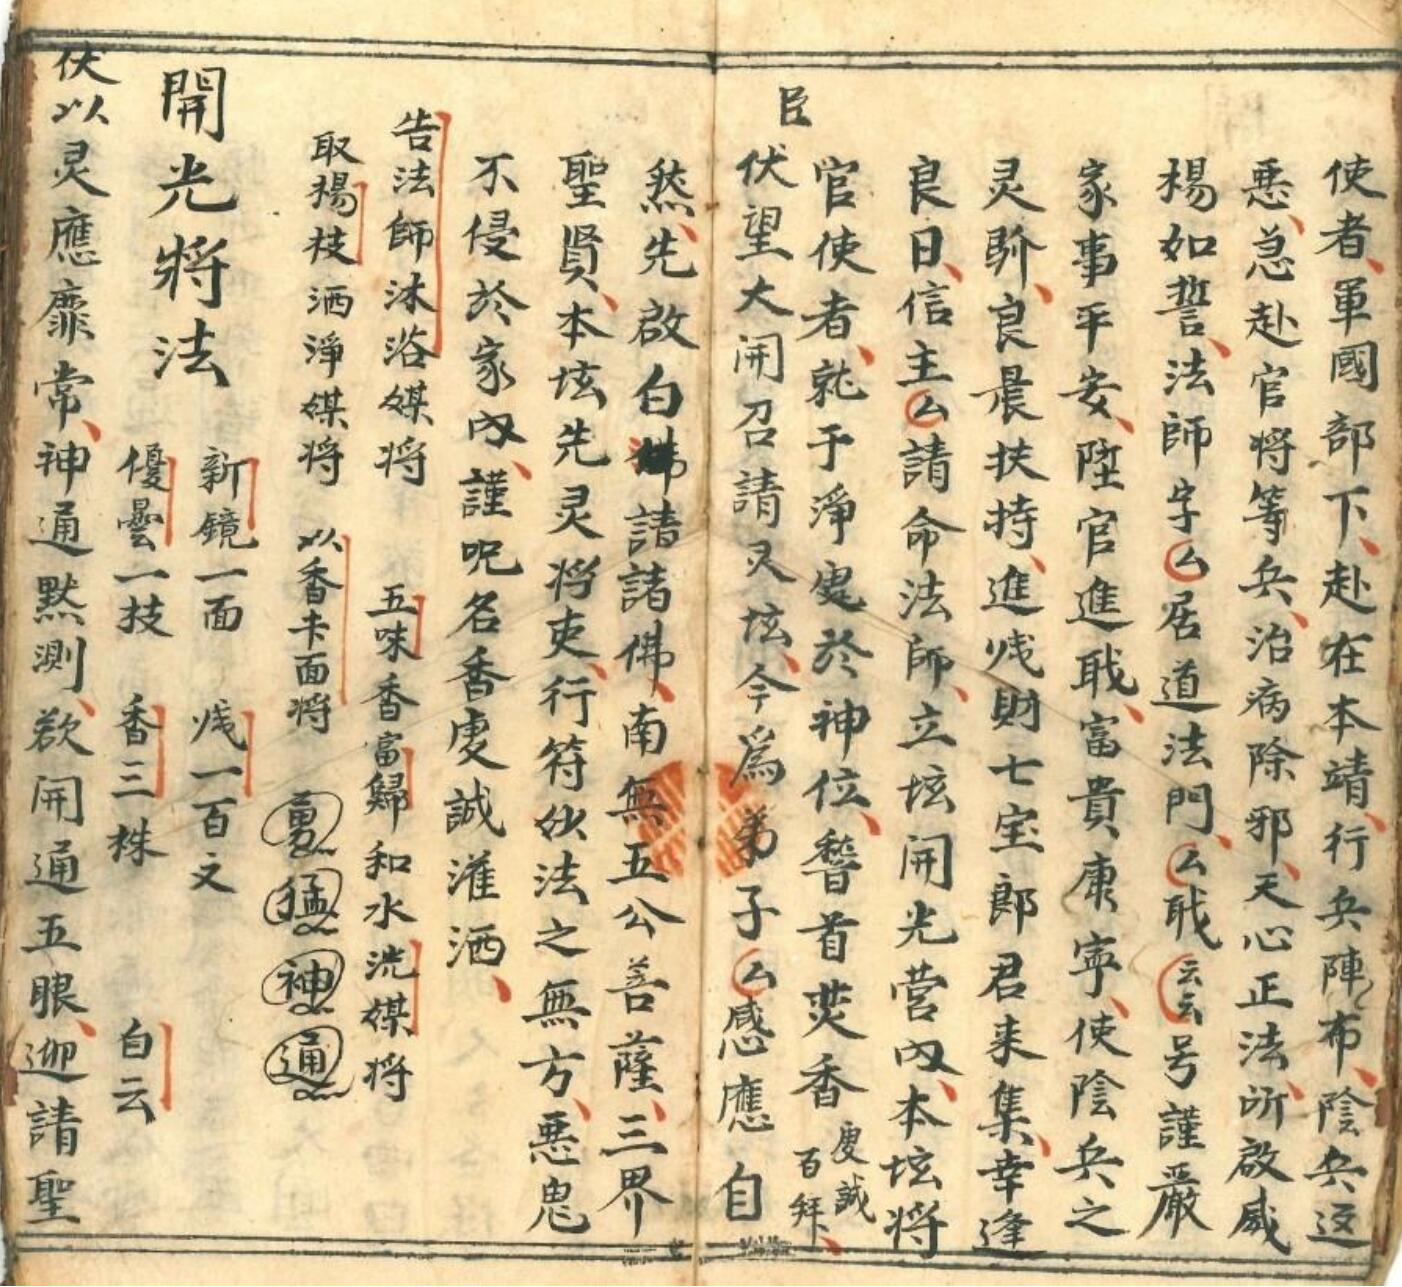 使者軍國部下赴在本靖行兵陣布陰兵这
悪急赴官将等兵治病除邪天心正法所啟威
楊如誓法師字厶居道法門厶耺云云号謹嚴
家事平安陞官進耺富貴康寕使陰兵之
灵騐良晨扶持進戋財七宝郎君来集幸逢
良日信主厶請命法師立坛開光营内本坛将
官使者就于淨処於神位謷首焚香 虔誠百拜
臣
伏望大開召請灵坛今為弟子厶感應自
然先啟白佛請諸佛南無五公菩薩三界
聖賢本坛先灵将吏行符伙法之無方悪鬼
不侵於家内謹呪名香虔誠潅洒
告法師沐浴媒将 五味香富歸和水洗媒将
取楊枝洒淨媒将 以香卡面将 勇猛神通
開光将法 新镜一面 戋一百文
優曇一技 香三株 白云
伏以灵應靡常神通黙測欲開通五眼迎請聖